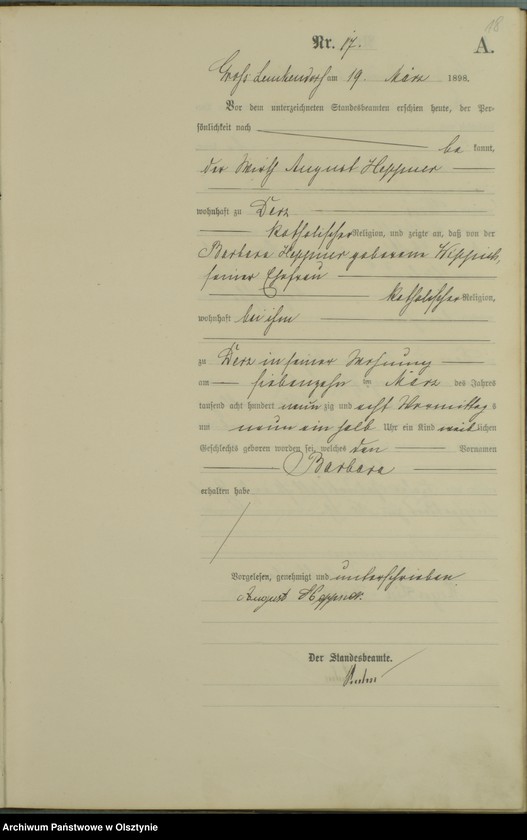 18
Nr. 17.
A.
Groß Lemkendorf am 19. März 1898.
Vor dem unterzeichneten Standesbeamten erschien heute, der Per-
sönlichkeit nach
be kannt,
der Wirth August Heppner
wohnhaft zu Derz
katholischer Religion, und zeigte an, daß von der
Barbara Heppner geborene Wippich,
seiner Ehefrau
katholischer Religion,
wohnhaft bei ihm
zu Derz in seiner Wohnung
am siebenzehn ten März des Jahres
tausend acht hundert neun zig und acht Vormittag s
um neun ein halb Uhr ein Kind weib lichen
Geschlechts geboren worden sei, welches den Vornamen
Barbara
erhalten habe
Vorgelesen, genehmigt und unterschrieben.
August Heppner.
Der Standesbeamte.
Archiwum Państwowe w Olsztynie